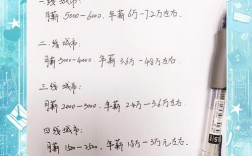 一线城市:
月薪 5000-6000, 年薪 6万-7.2万左右.
二线城市:
月薪 3000-4000, 年薪 3.6万-4.8万左右.
三线城市:
月薪 2000-3000, 年薪 2.4万-3.6万左右.
四线城市
月薪 1500-2500, 年薪 1.8万-3万元左右.